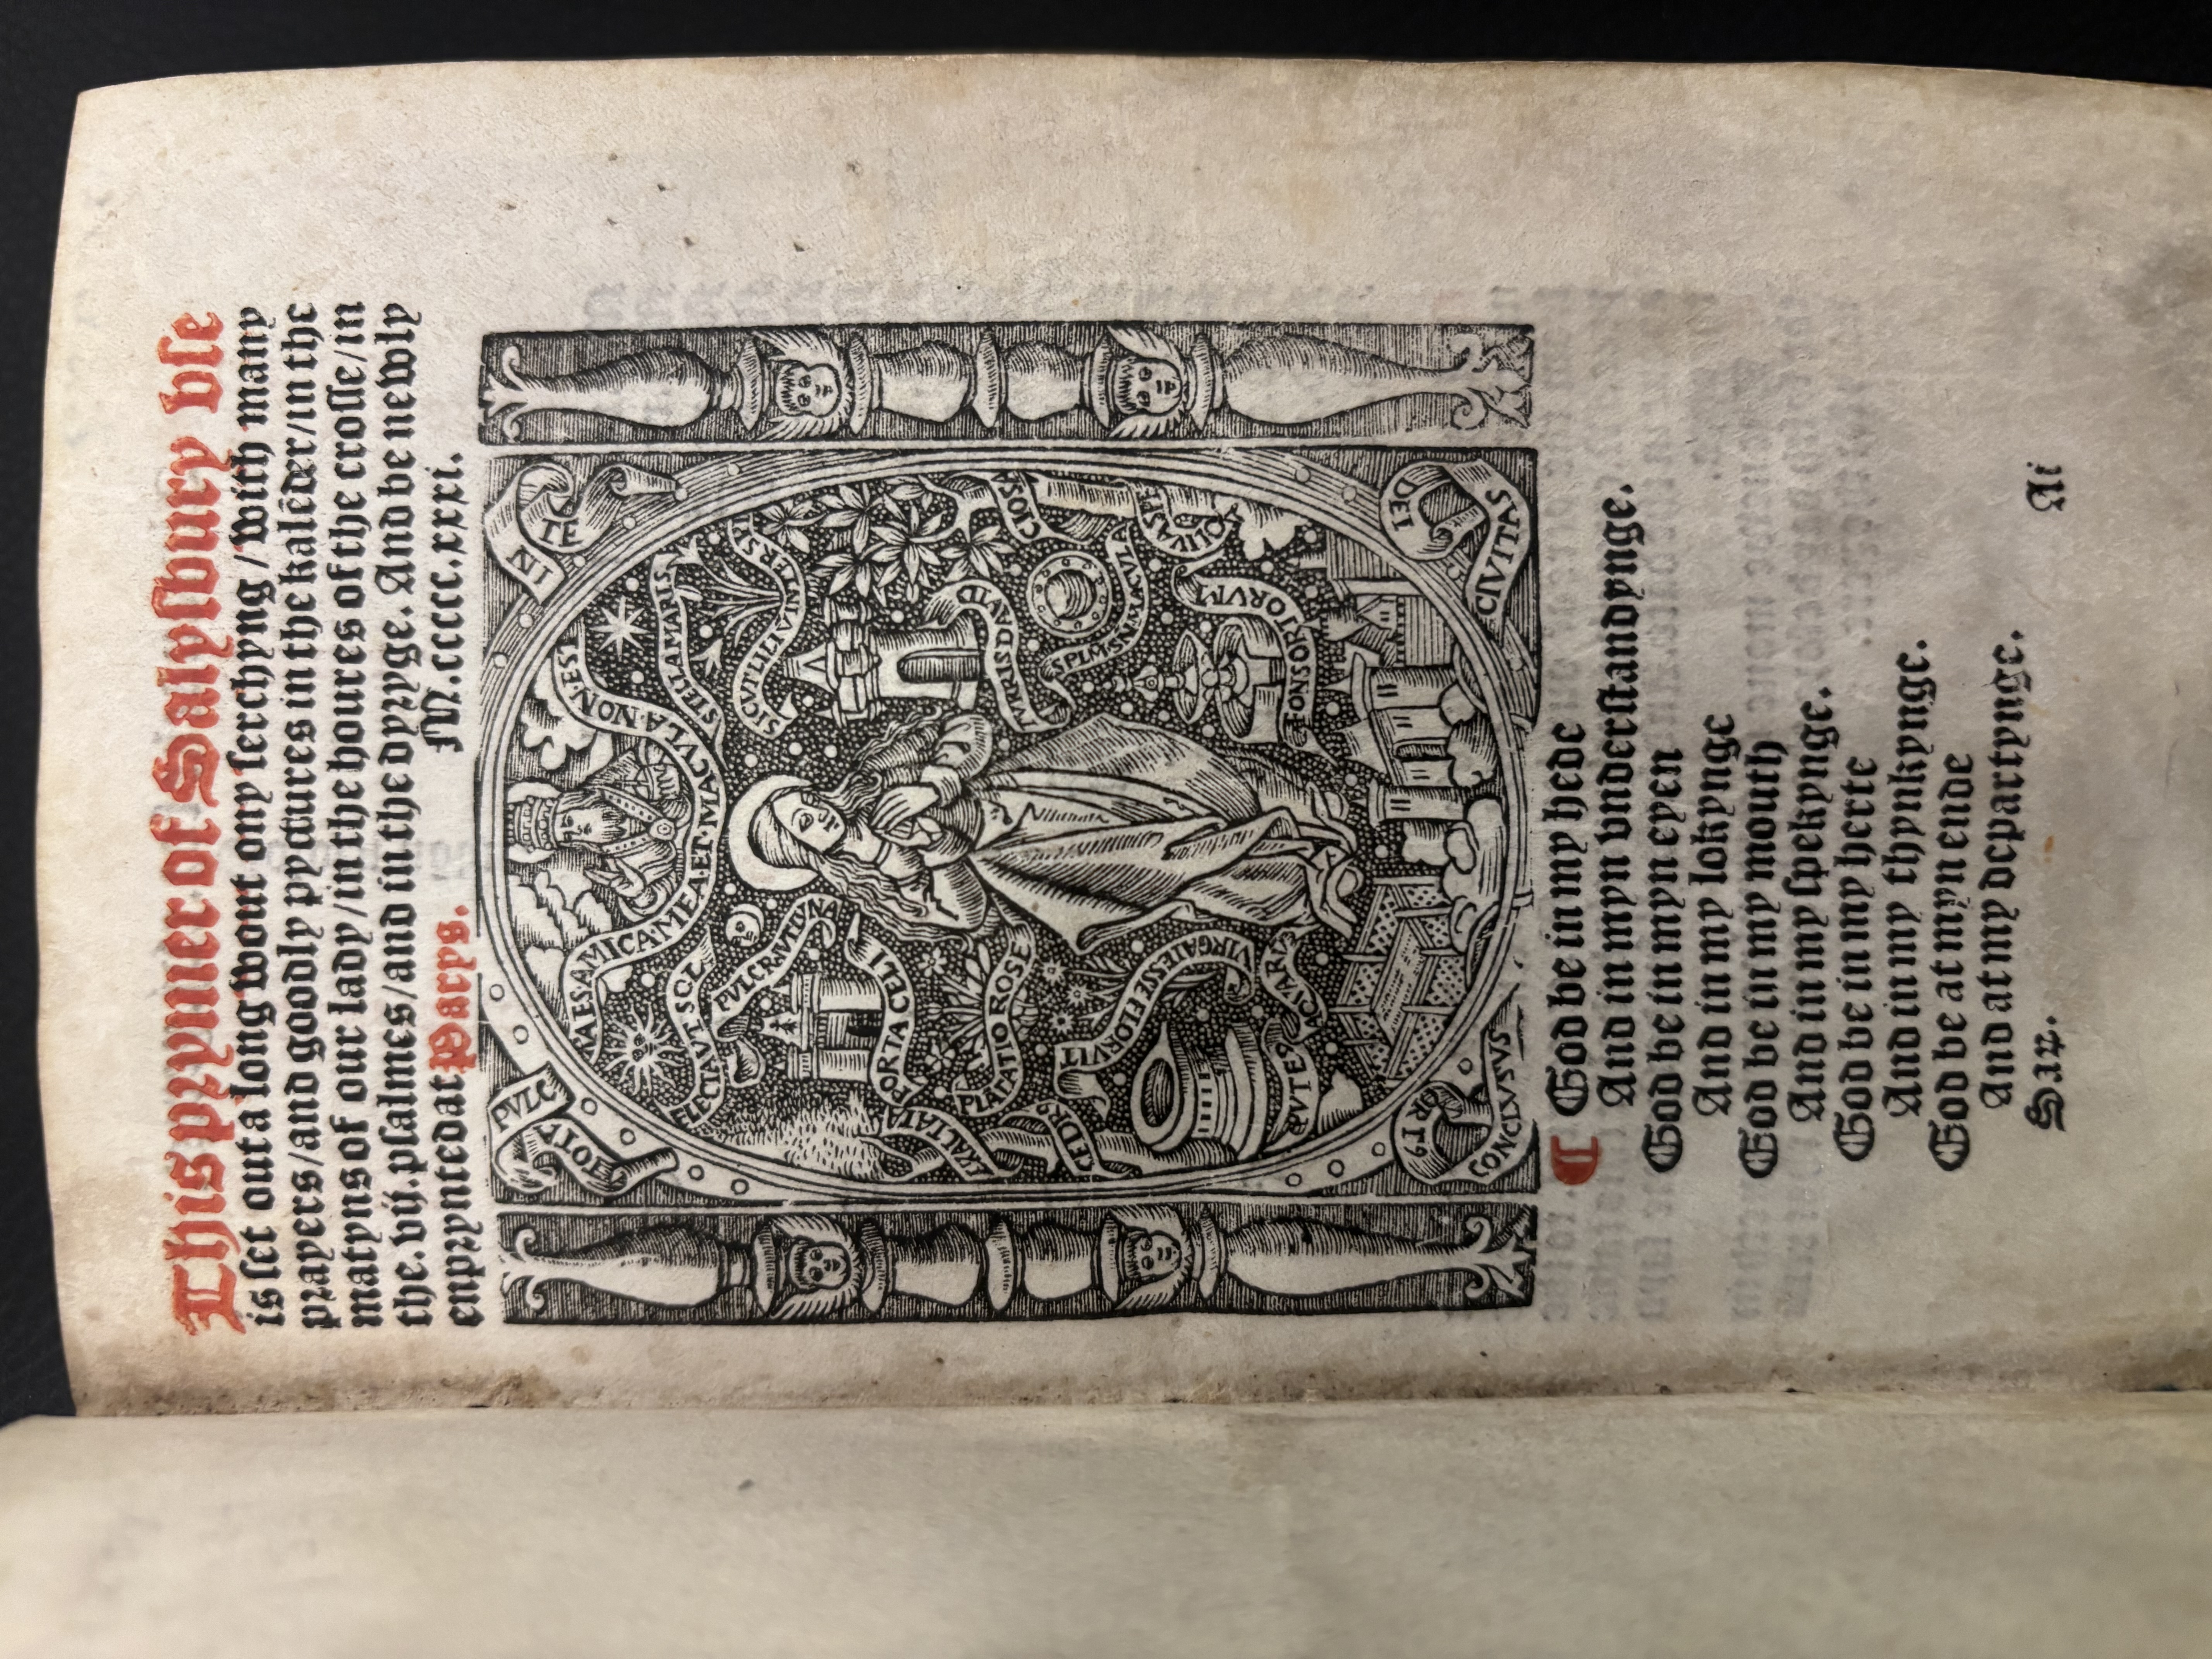 This prymer of Salysbury vse
is set out a long wout ony serchyng / with many
prayers / and goodly pyctures in the kalēder / in the
matyns of our lady / in the houres of the crosse / in
the .vij. psalmes / and in the dyryge. And be newly
enprynted at Parys. M.ccccc.xxxi.
TOTA
PVLC
IN
TE
RA ES AMICA MEA ET MACVLA NON EST
ELECTA VT SOL
STELLA MARIS
PVLCRA VT LVNA
SICVT LILIV INTER SPI
PORTA CELI
TVRRIS DAVID
EXALTATA
CEDR9
PLATATIO ROSE
CIOSA
SPLM SN MACVLA
OLIVA SPE
VIRGA IESSE FLORVIT
FONS ORTORVM
PVTES AQVARV
ORT9
CONCLVSVS
CIVITAS
DEI
God be in my hede
And in myn vnderstandynge.
God be in myn eyen
And in my lokynge
God be in my mouth
And in my spekynge.
God be in my herte
And in my thynkynge.
God be at myn ende
And at my departynge.
Sar. Ai